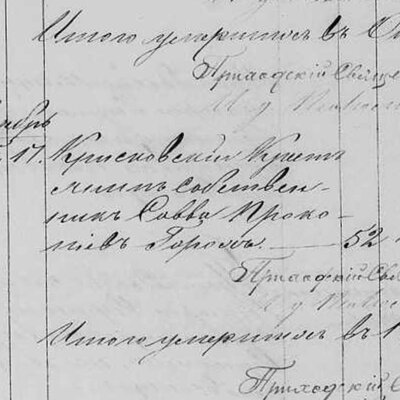 Итого умершихъ въ
Приходскій Свяще
ябрь
17. Крисковскій Крест
янинъ собствен-
никъ Савва Проко-
піевъ 52
Приходскій Свя
Итого умершихъ въ
Приходскій